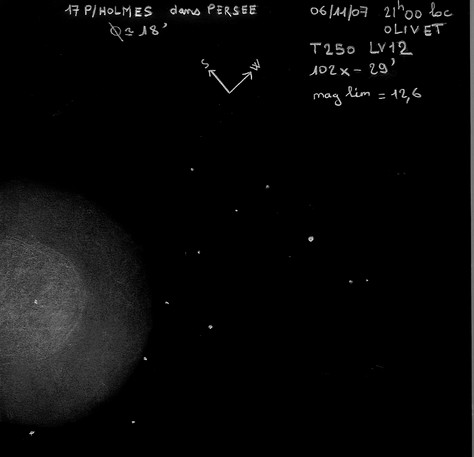 17 P/HOLMES dans PERSEE
Ø ≃ 18'
S W
06/11/07 21h00 loc
OLIVET
T250 LV12
102x - 29'
mag lim = 12,6